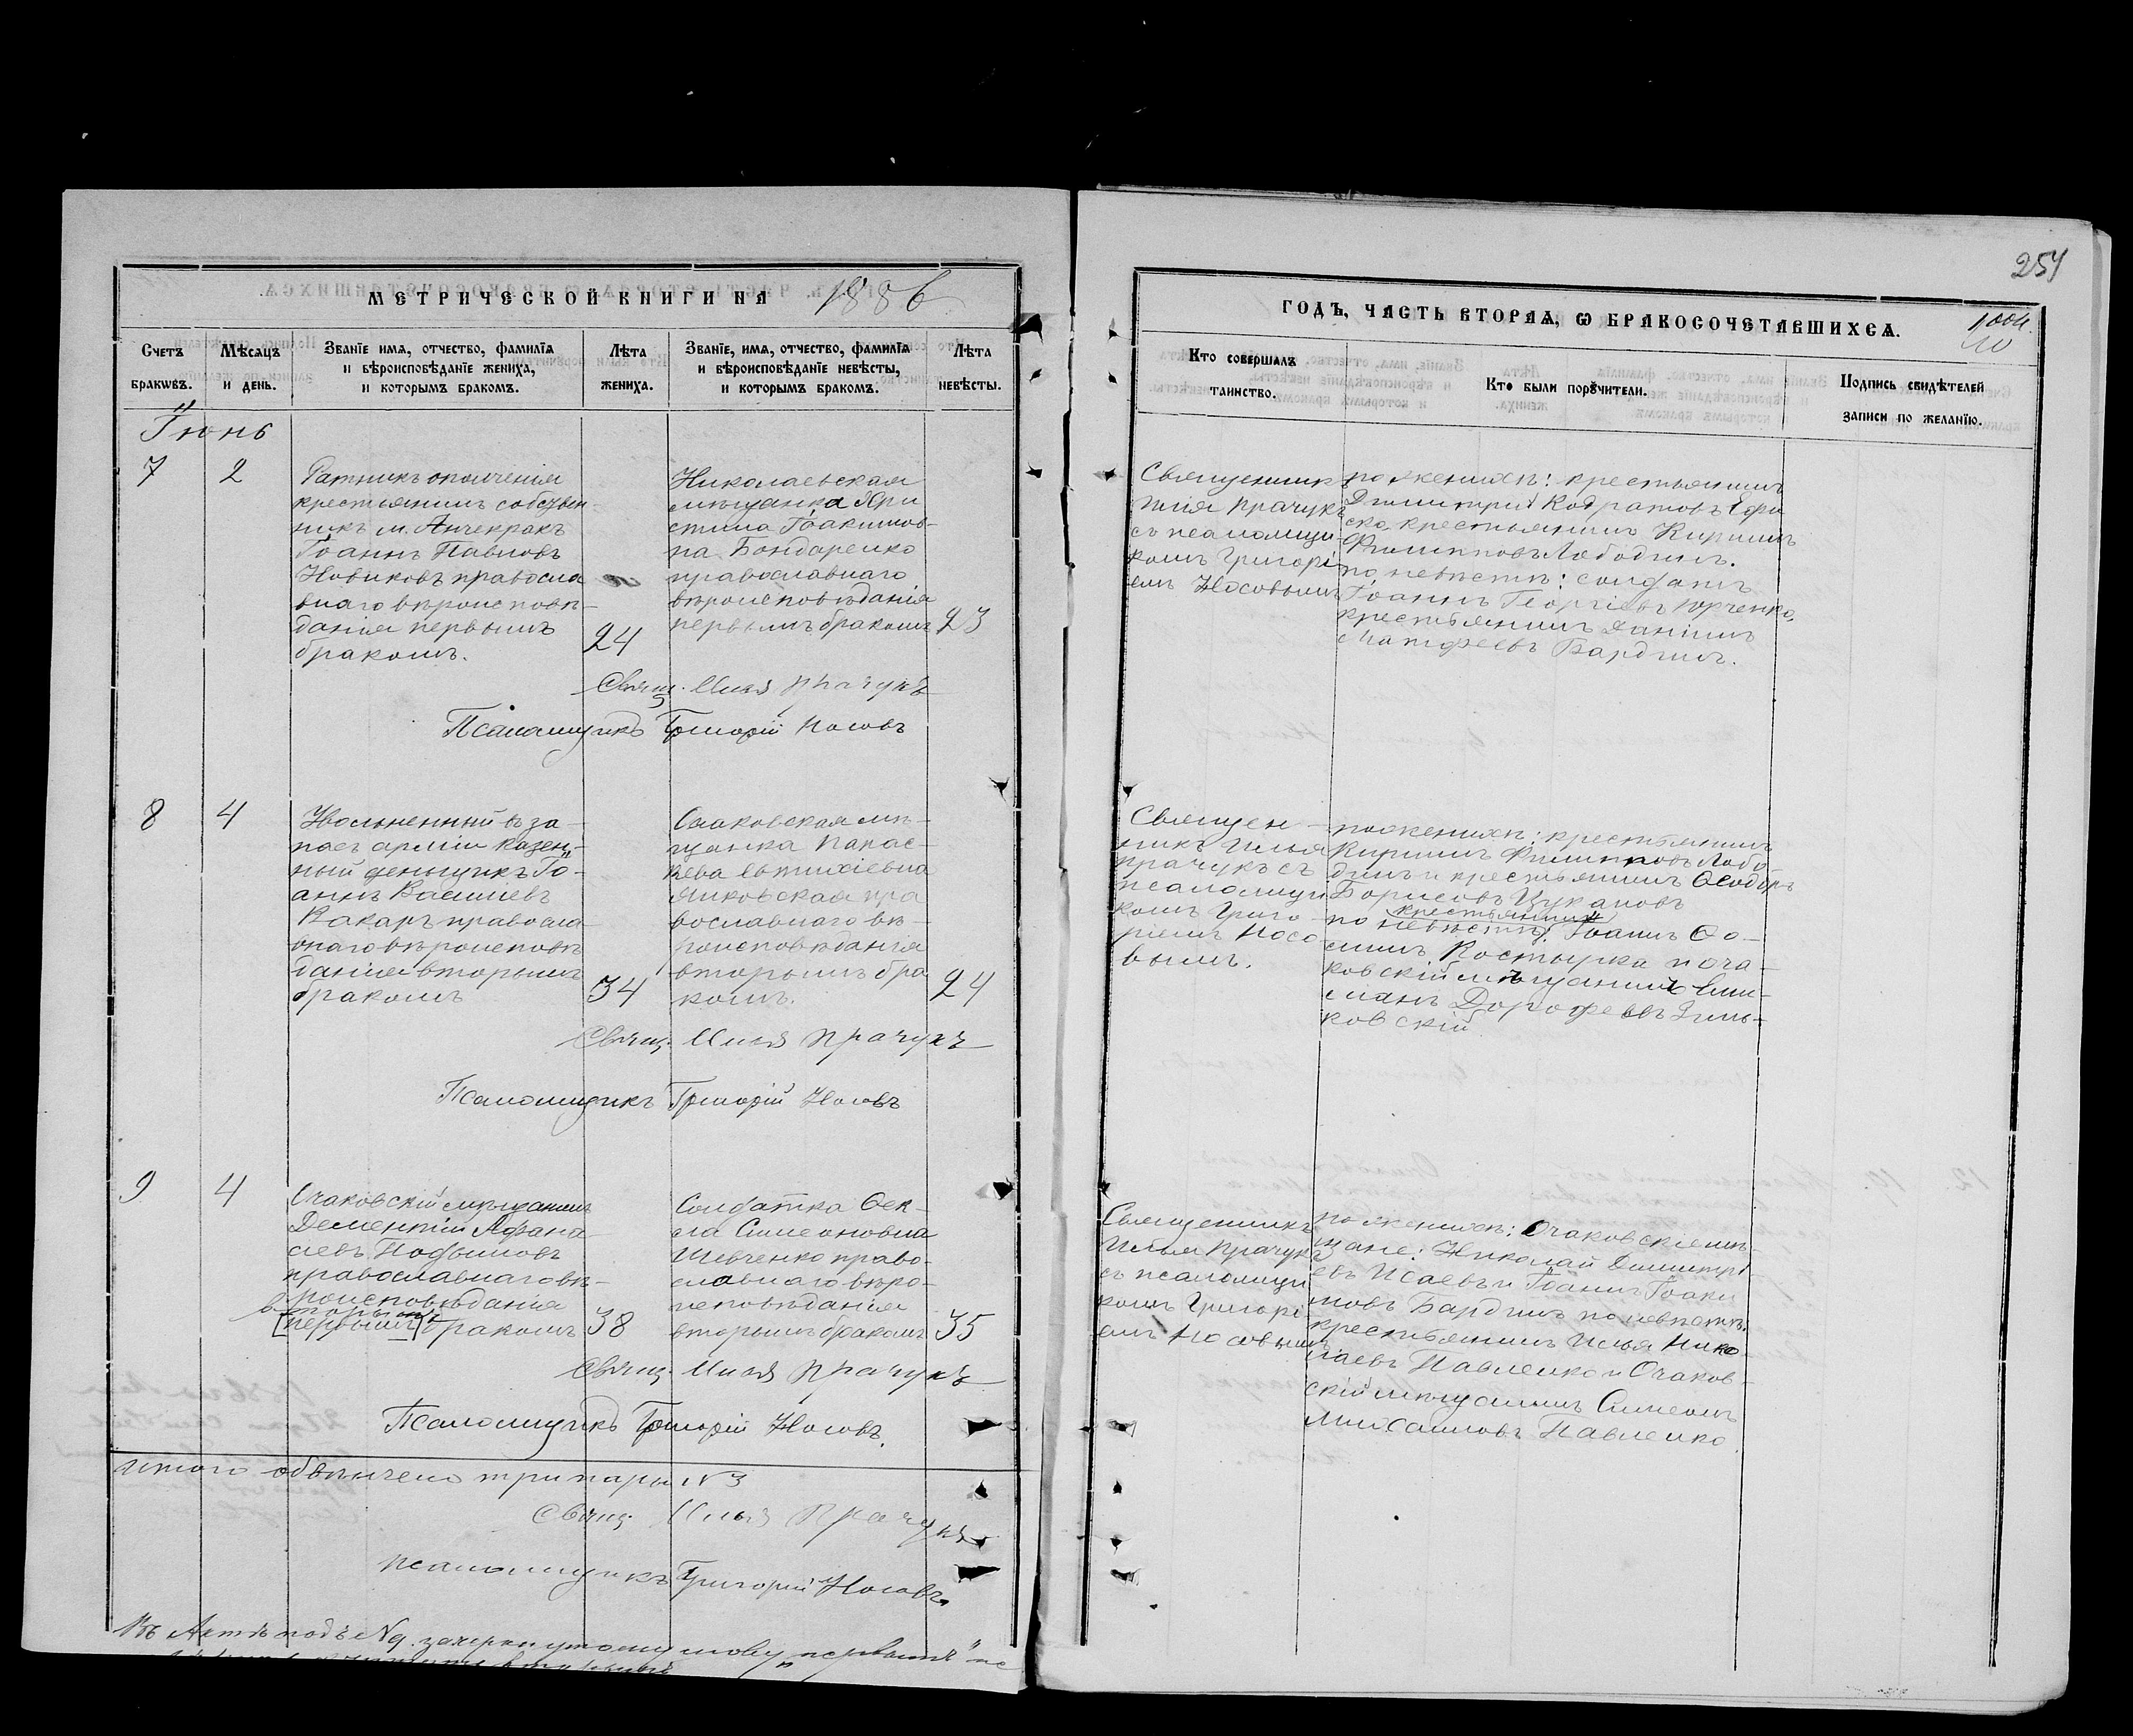 МЕТРИЧЕСКОЙ КНИГИ НА 1886
Счетъ браковъ.
Мѣсяцъ и день.
Званіе имя, отчество, фамилія
и вѣроисповѣданіе жениха,
и которымъ бракомъ.
Лѣта
жениха.
Званіе, имя, отчество, фамилія
и вѣроисповѣданіе невѣсты,
и которымъ бракомъ.
Лѣта
невѣсты.
Іюнь
7
2
Ратникъ ополченія
крестьянинъ собствен-
никъ м. Анчекракъ
Іоаннъ Павловъ
Новиковъ правосла
внаго вѣроисповѣ-
данія первымъ
бракомъ.
24
Николаевская
мѣщанка Хри
стина Іоакимов-
на Бондаренко
православнаго
вѣроисповѣданія
первымъ бракомъ
23
Свящ. Илья Прачукъ
Псаломщикъ Григорій Носовъ
8
4
Уволенный въ за-
пасъ арміи казен-
ный деньщикъ Іо-
аннъ Василіевъ
Какаръ правосла-
внаго вѣроисповѣ
данія вторымъ
бракомъ
34
Очаковская мѣ-
щанка Парас-
кева Евтихіевна
Янковская пра
вославнаго вѣ-
роисповѣданія
вторымъ бра
комъ.
24
Свящ. Илья Прачукъ
Псаломщикъ Григорій Носовъ
9
4
Очаковскій мѣщанинъ
Дементій Афана
сіевъ
православнаго вѣ-
роисповѣданія
вторымъ
[первымъ] бракомъ
38
Солдатка Ѳек-
ла Симеоновна
Шевченко право-
славнаго вѣро-
исповѣданія
вторымъ бракомъ
35
Свящ. Илья Прачукъ
Псаломщикъ Григорій Носовъ.
Итого обвѣнчено три пары N 3
Свящ. Илья Прачукъ
Псаломщикъ Григорій Носовъ
Въ Актѣ подъ N 9. зачеркнутому слову „первымъ" не
254
ГОДЪ, ЧАСТЬ ВТОРАЯ, Ѡ БРАКОСОЧЕТАВШИХСЯ.
Кто совершалъ
таинство.
Кто были поручители.
Подпись свидѣтелей
записи по желанію.
Священникъ
Илія Прачукъ
съ псаломщи
комъ Григорі
емъ Носовымъ
по женихѣ: крестьянинъ
Димитрій
крестьянинъ Кириллъ
Филипповъ Лободинъ.
по невѣстѣ: солдатъ
Іоаннъ Георгіевъ Юрченко,
крестьянинъ Даніилъ
Матфеевъ Бардинъ.
Священ-
никъ Илья
Прачукъ съ
псаломщи
комъ Григо-
ріемъ Носо
вымъ.
по женихѣ: крестьянинъ
Кириллъ Филипповъ Лобо
динъ и крестьянинъ Ѳеодоръ
Борисовъ Цукановъ
крестьянинъ
по невѣстѣ: Іоаннъ Ѳо-
минъ Костырка и оча-
ковскій мѣщанинъ Еми-
ліанъ Дорофеевъ Зинь-
ковскій
Священникъ
Илья Прачукъ
съ псаломщи
комъ Григорі
емъ Носовымъ
по женихѣ: Очаковскіе мѣ-
щане: Николай Димитрі
евъ Исаевъ и Іоаннъ Іоаки
мовъ Бардинъ по невѣстѣ:
крестьянинъ Илья Нико
лаевъ Павленко и Очаков-
скій мѣщанинъ Симеонъ
Михаиловъ Павленко.